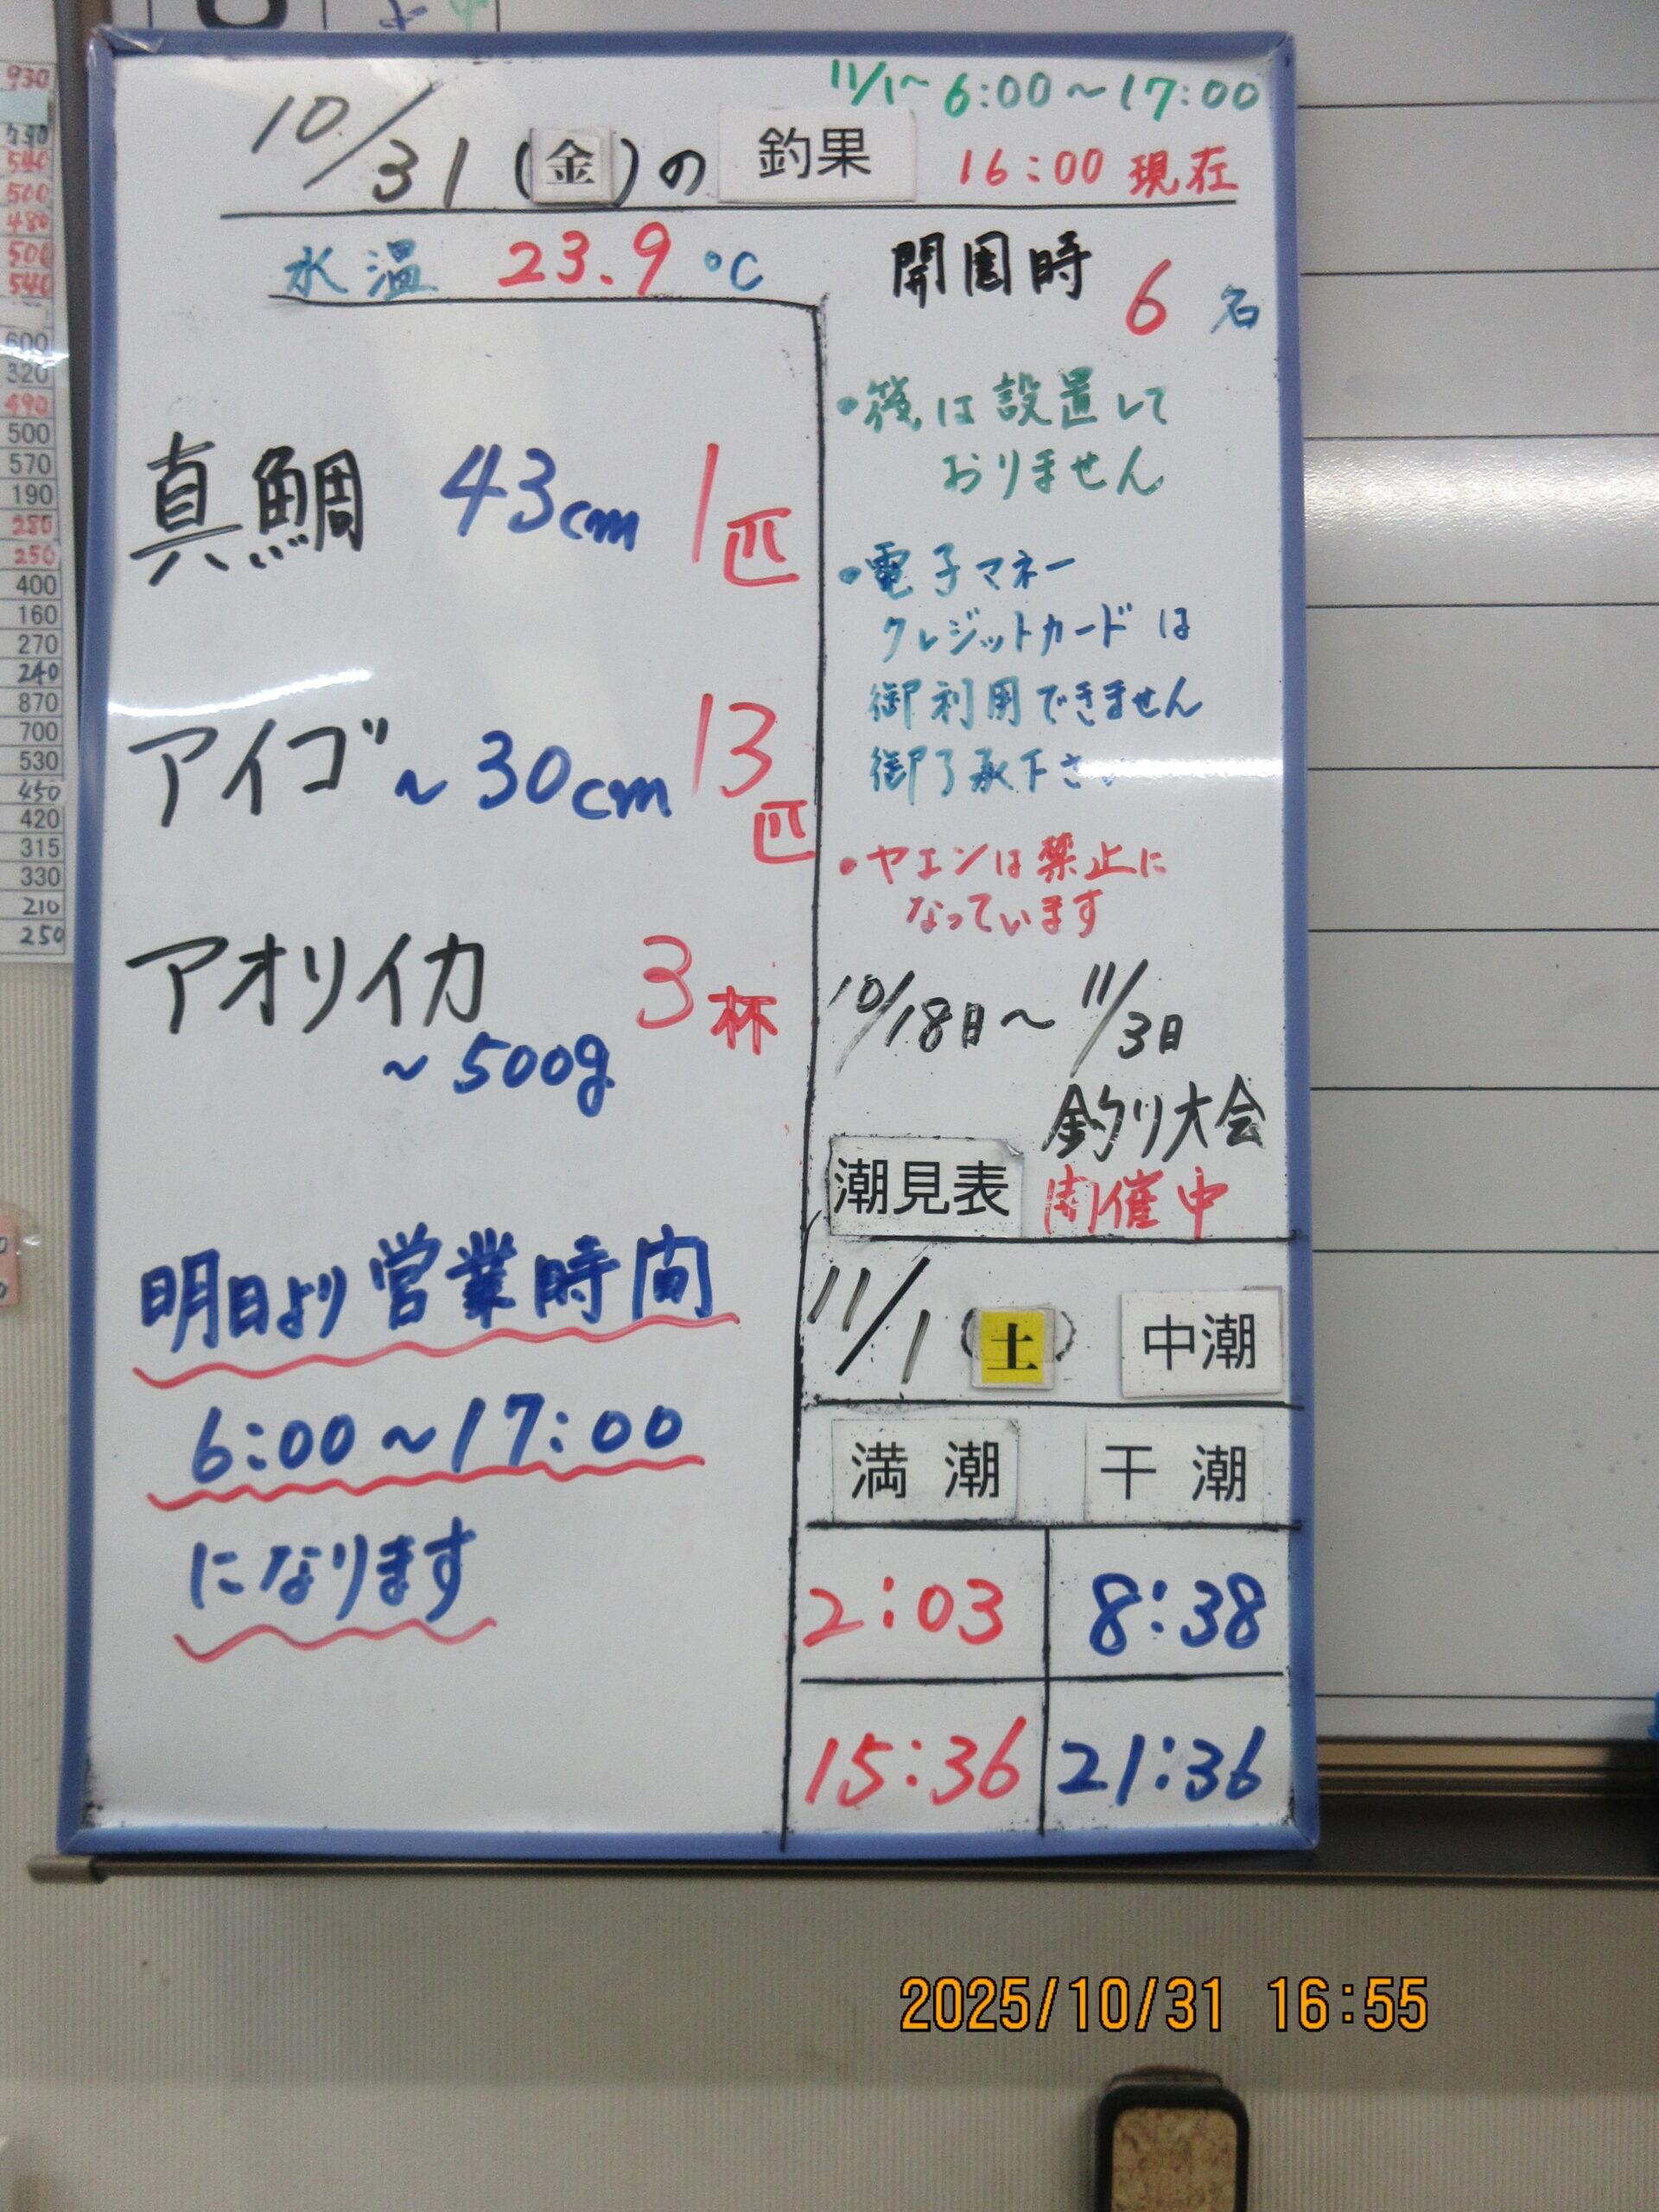 11/1~ 6:00~17:00
10/31(金)の 釣果 16:00 現在
水温 23.9 ℃
開園時 6 名
真鯛 43cm 1匹
アイゴ ~30cm 13匹
アオリイカ 3杯
~500g
明日より営業時間
6:00~17:00
になります
・筏は設置して
おりません
・電子マネー
クレジットカードは
御利用できません
御了承下さい
・ヤエンは禁止に
なっています
10/18日~11/3日
釣り大会
開催中
潮見表
11/1(土) 中潮
満潮 干潮
2:03 8:38
15:36 21:36
930
540
500
480
500
540
600
320
490
500
570
190
280
250
400
160
270
240
870
700
530
450
420
315
330
210
250
2025/10/31 16:55